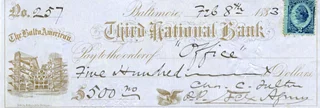 No. 257 Baltimore, Feb 8th 1883
The Balto. American.
Third National Bank
Pay to the order of "Office"
Five Hundred Dollars
$500.00 Chas. C. Fulton